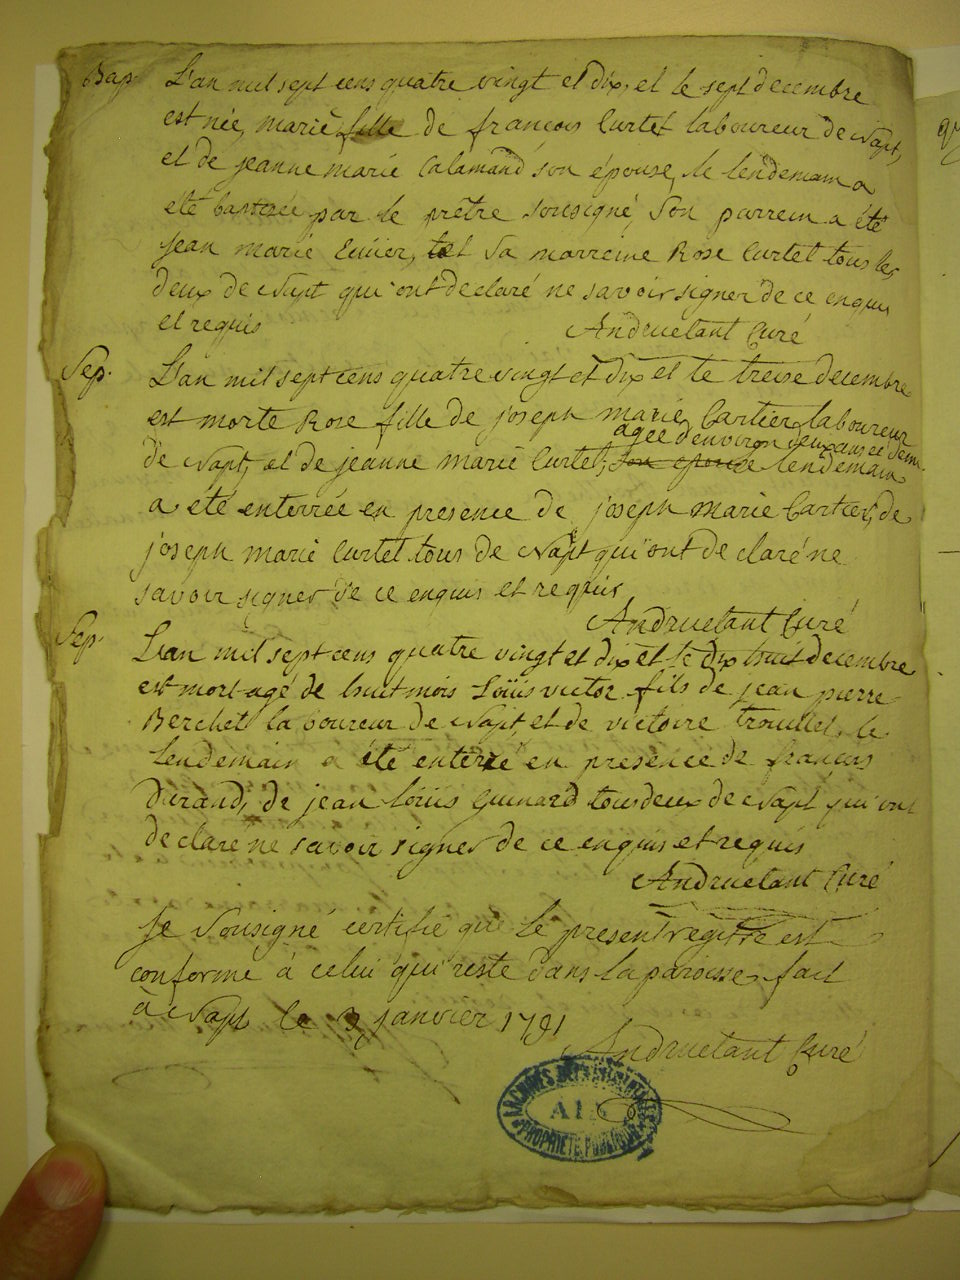 Bap. L'an mil sept cens quatre vingt et dix, et le sept decembre
est née, marie fille de françois Curtet laboureur de Napt,
et de jeanne marie Calamand son épouse, le lendemain a
été baptisée par le prêtre sousigné, son parrein a été
jean marie Cuvier, et sa marreine Rose Curtet tous les
deux de Napt qui ont declaré ne savoir signer de ce enquis
et requis
Andruetant Curé
Sep. L'an mil sept cens quatre vingt et dix et le treise decembre
est morte Rose fille de joseph marie Cartier laboureur
agée d'environ deux ans et demi
de Napt, et de jeanne marie Curtet, son epouse le lendemain
a été enterrée en presence de joseph marie Cartier, de
joseph marie Curtet tous de Napt qui ont declaré ne
savoir signer de ce enquis et requis
Andruetant Curé
Sep. L'an mil sept cens quatre vingt et dix et le dix huit decembre
est mort agé de huit mois Loüis victor fils de jean pierre
Berchet laboureur de Napt, et de victoire trouillet, le
lendemain a été enterré en presence de françois
Durand, de jean loüis Guinard tous deux de Napt qui ont
declaré ne savoir signer de ce enquis et requis
Andruetant Curé
Je sousigné certifie que le present registre est
conforme à celui qui reste dans la paroisse fait
à Napt le 3 janvier 1791
Andruetant Curé
ARCHIVES DEPARTEMENTALES
AIN
PROPRIETE PUBLIQUE